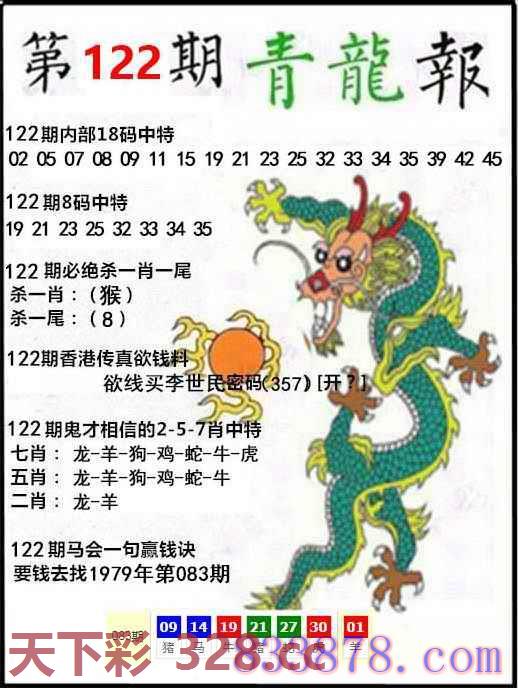 第122期青龍報
122期内部18码中特
02 05 07 08 09 11 15 19 21 23 25 32 33 34 35 39 42 45
122期8码中特
19 21 23 25 32 33 34 35
122期必绝杀一肖一尾
杀一肖：（猴）
杀一尾：（8）
122期香港传真欲钱料
欲线买李世民密码(357) [开?]
122期鬼才相信的2-5-7肖中特
七肖：龙-羊-狗-鸡-蛇-牛-虎
五肖：龙-羊-狗-鸡-蛇-牛
二肖：龙-羊
122期马会一句赢钱诀
要钱去找1979年第083期
083期 09 14 19 21 27 30 01
猪 马 牛 猪 虎 羊
天下彩 328.cc